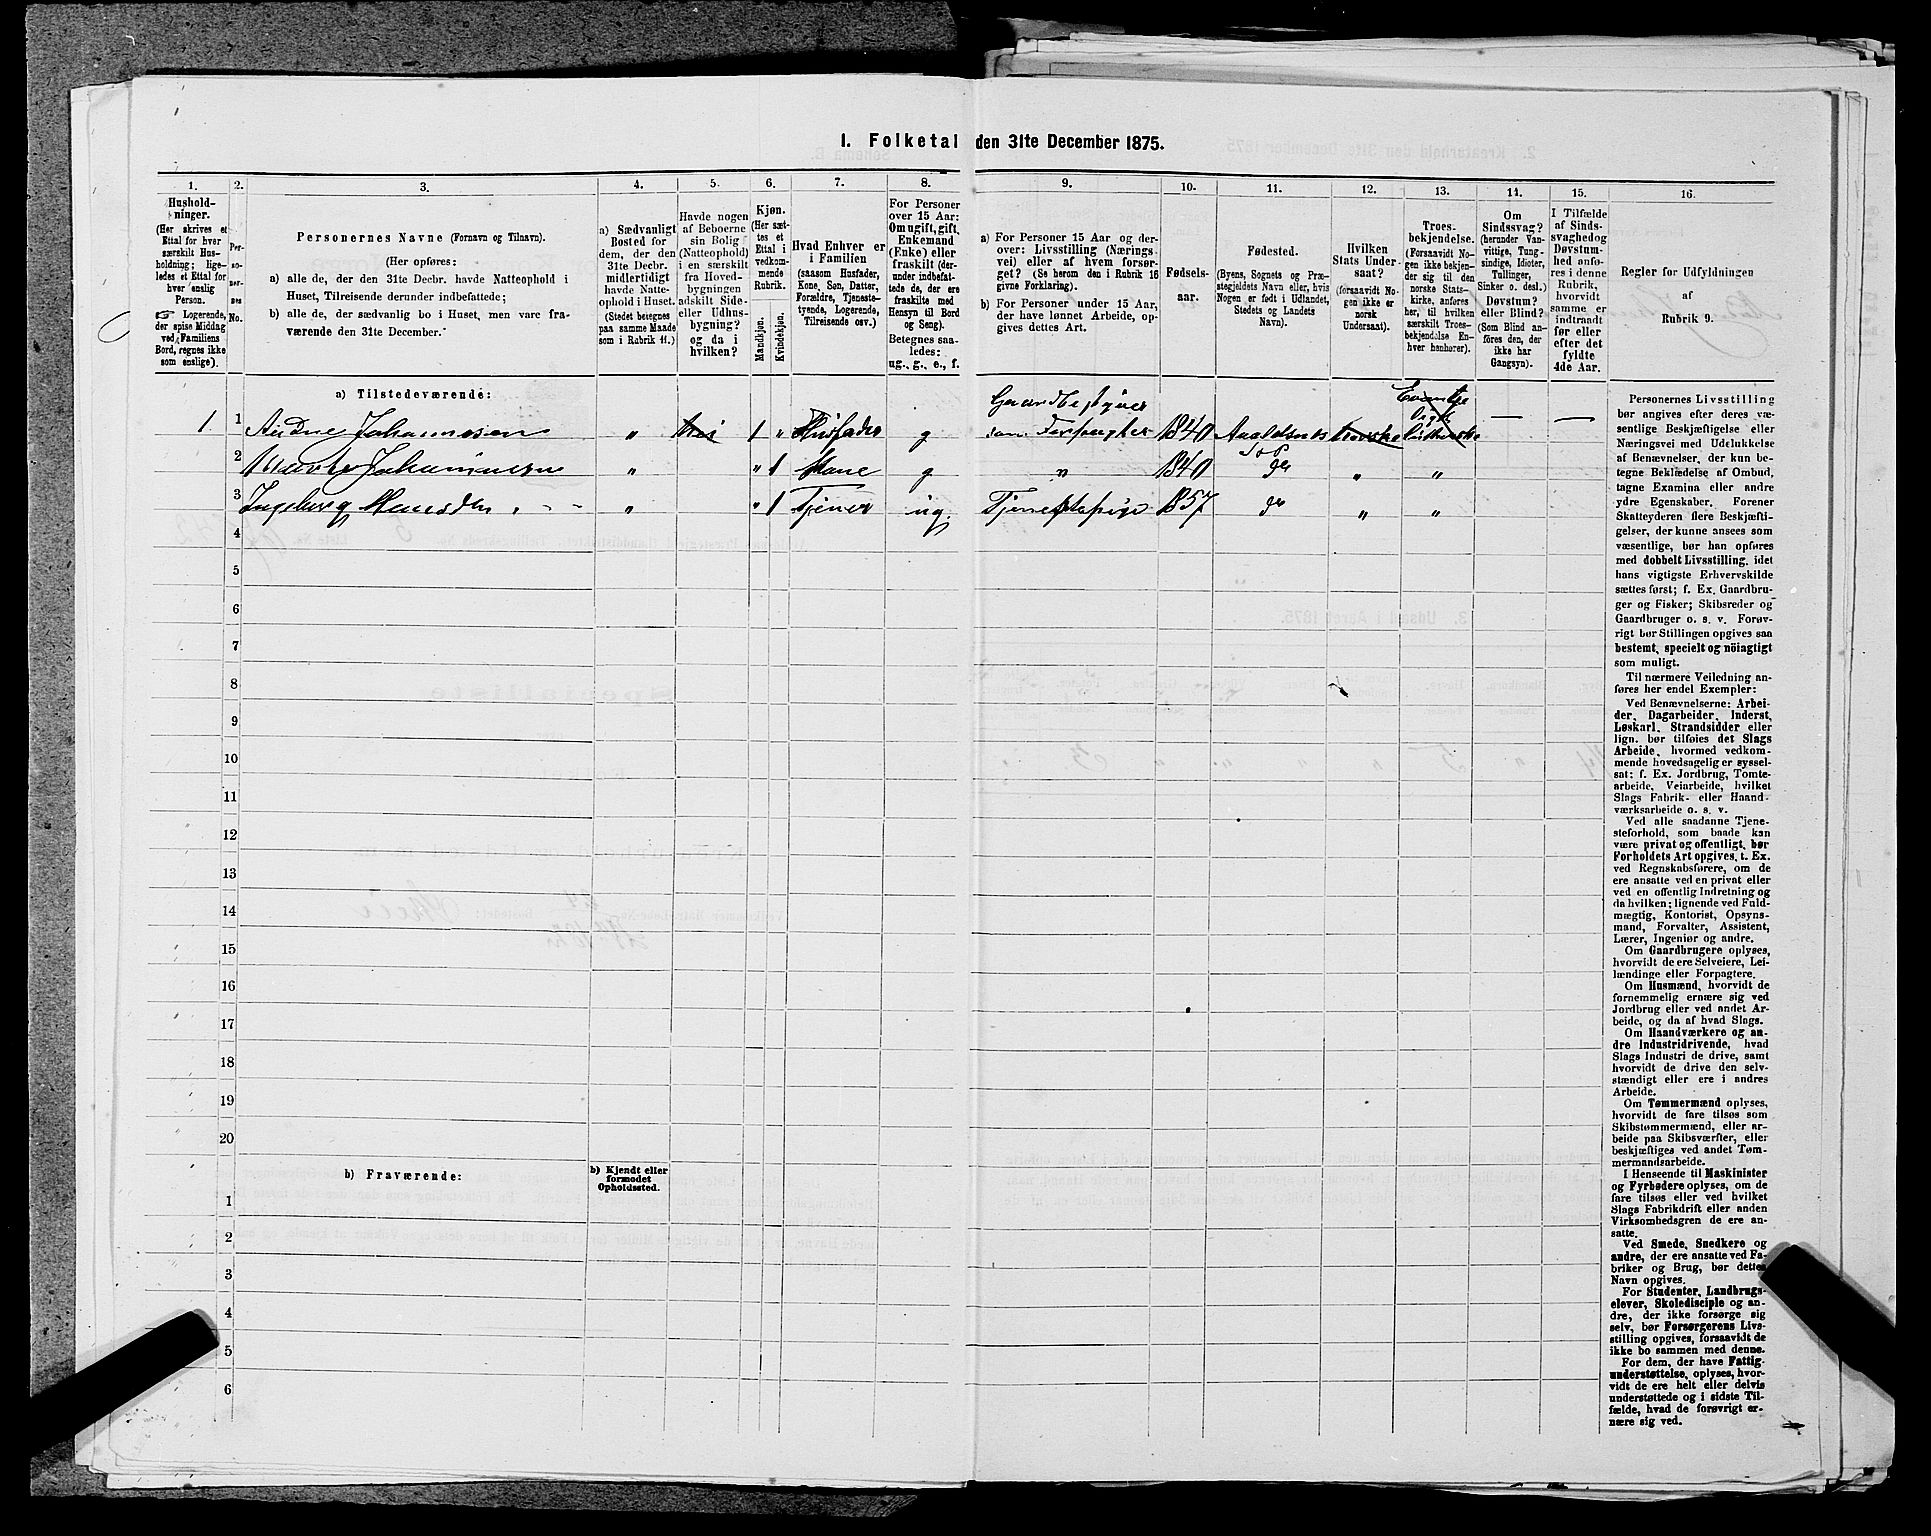 I. Folketal den 31te December 1875.
1. 2. 3. 4. 5. 6. 7. 8. 9. 10. 11. 12. 13. 14. 15. 16.
Hushold-
ninger.
(Her skrives et
Ettal for hver
særskilt Hus-
holdning; lige-
ledes et Ettal for
hver enslig
Person.
☞ Logerende,
der spise Middag
ved Familiens
Bord, regnes ikke
som enslige).
Per-
so-
ner-
nes
No.
Personernes Navne (Fornavn og Tilnavn).
(Her opføres:
a) alle de, der den 31te Decbr. havde Natteophold i
Huset, Tilreisende derunder indbefattede;
b) alle de, der sædvanlig bo i Huset, men vare fra-
værende den 31te December.
a) Sædvanligt
Bosted for
dem, der den
31te Decbr.
midlertidigt
havde Natte-
ophold i Huset.
(Stedet betegnes
paa samme Maade
som i Rubrik 11.)
Havde nogen
af Beboerne
sin Bolig
(Natteophold)
i en særskilt
fra Hoved-
bygningen
adskilt Side-
eller Udhus-
bygning?
og da i
hvilken?
Kjøn.
(Her sæt-
tes et
Ettal i
vedkom-
mende
Rubrik.
Mandkjøn.
Kvindekjøn.
Hvad Enhver er
i Familien
(saasom Husfader,
Kone, Søn, Datter,
Forældre, Tjeneste-
tyende, Logerende,
Tilreisende osv.)
For Personer
over 15 Aar:
Om ugift, gift,
Enkemand
(Enke) eller
fraskilt (der-
under indbefat-
tede de, der ere
fraskilte med
Hensyn til Bord
og Seng).
Betegnes saa-
ledes:
ug., g., e., f.
a) For Personer 15 Aar og der-
over: Livsstilling (Nærings-
vei) eller af hvem forsør-
get? (Se herom den i Rubrik 16
givne Forklaring).
b) For Personer under 15 Aar,
der have lønnet Arbeide, op-
gives dettes Art.
Fødsels-
aar.
Fødested.
(Byens, Sognets og Præ-
stegjeldets Navn eller, hvis
Nogen er født i Udlandet,
Stedets og Landets
Navn).
Hvilken
Stats Under-
saat?
(forsaavidt No-
gen ikke er
norsk
Undersaat).
Troes-
bekjendelse.
(Forsaavidt No-
gen ikke bekjen-
der sig til den
norske Stats-
kirke, anføres
her, til hvilken
særskilt Troes-
bekjendelse En-
hver henhører).
Om
Sindssvag?
(herunder Van-
vittige, Tung-
sindige, Idioter,
Tullinger,
Sinker o. desl.)
Døvstum?
eller Blind?
(Som Blind an-
föres den, der
ikke har
Gangsyn).
I Tilfælde
af Sinds-
svaghed og
Døvstum-
hed anfø-
res i denne
Rubrik,
hvorvidt
samme er
indtraadt
før eller
efter det
fyldte
4de Aar.
Regler for Udfyldningen
af
Rubrik 9.
a) Tilstedeværende:
Gaardbestyrer
1 1 Johannesen " Nei 1 " Husfader g som Forpagter 1840 Norske lutherske — —
2 " " 1 Kone g " 1840 do " "
3 Ingeborg Hansdtr " " 1 Tjener ug. Tjenestepige 1857 do " "
4
5
6
7
8
9
10
11
12
13
14
15
16
17
18
19
20
b) Fraværende:
b) Kjendt eller
formodet
Opholdssted.
1
2
3
4
5
6
Personernes Livsstilling
bør angives efter deres væ-
sentlige Beskjæftigelse eller
Næringsvei med Udelukkelse
af Benævnelser, der kun be-
tegne Beklædelse af Ombud,
tagne Examina eller andre
ydre Egenskaber. Forener
Skatteyderen flere Beskjæfti-
gelser, der kunne ansees som
væsentlige, bør han opføres
med dobbelt Livsstilling, idet
hans vigtigste Erhvervskilde
sættes først; f. Ex. Gaardbru-
ger og Fisker; Skibsreder og
Gaardbruger o. s. v. Forøv-
rigt bør Stillingen opgives saa
bestemt, specielt og nöiagtigt
som muligt.
Til nærmere Veiledning an-
føres her endel Exempler:
Ved Benævnelserne: Arbei-
der, Dagarbeider, Inderst,
Løskarl, Strandsidder eller
lign. bør tilføies det Slags
Arbeide, hvormed vedkom-
mende hovedsagelig er syssel-
sat; f. Ex. Jordbrug, Tomte-
arbeide, Veiarbeide, hvilket
Slags Fabrik- eller Haand-
værksarbeide o. s. v.
Ved alle saadanne Tjene-
steforhold, som baade kan
være privat og offentligt, bør
Forholdets Art opgives, t. Ex.
ved Regnskabsførere, om de
ere ansatte ved en privat eller
ved en offentlig Indretning og
da hvilken; lignende ved Fuld-
mægtig, Kontorist, Opsyns-
mand, Forvalter, Assistent,
Lærer, Ingeniør og andre.
Om Gaardbrugere oplyses,
hvorvidt de ere Selveiere, Lei-
lændinge eller Forpagtere.
Om Husmænd, hvorvidt de
fornemmelig ernære sig ved
Jordbrug eller ved andet Ar-
beide, og da af hvad Slags.
Om Haandværkere og an-
dre Industridrivende, hvad
Slags Industri de drive, samt
hvorvidt de drive den selv-
stændigt eller ere i andres
Arbeide.
Om Tømmermænd oplyses,
hvorvidt de fare tilsøs som
Skibstømmermænd, eller ar-
beide paa Skibsværfter, eller
beskjæftiges ved andet Tøm-
mermandsarbeide.
I Henseende til Maskinister
og Fyrbødere oplyses, om de
fare tilsøs eller ved hvilket
Slags Fabrikdrift eller anden
Virksomhedsgren de ere an-
satte.
Ved Smede, Snedkere og
andre, der ere ansatte ved Fa-
briker og Brug, bør dettes
Navn opgives.
For Studenter, Landbrugs-
elever, Skoledisciple og an-
dre, der ikke forsørge sig
selv, bør Forsørgerens Livs-
stilling opgives, forsaavidt de
ikke bo sammen med denne.
For dem, der have Fattig-
understøttelse, oplyses, hvor-
vidt de ere helt eller delvis
understøttede og i sidste Til-
fælde, hvad de forøvrigt er-
nære sig ved.